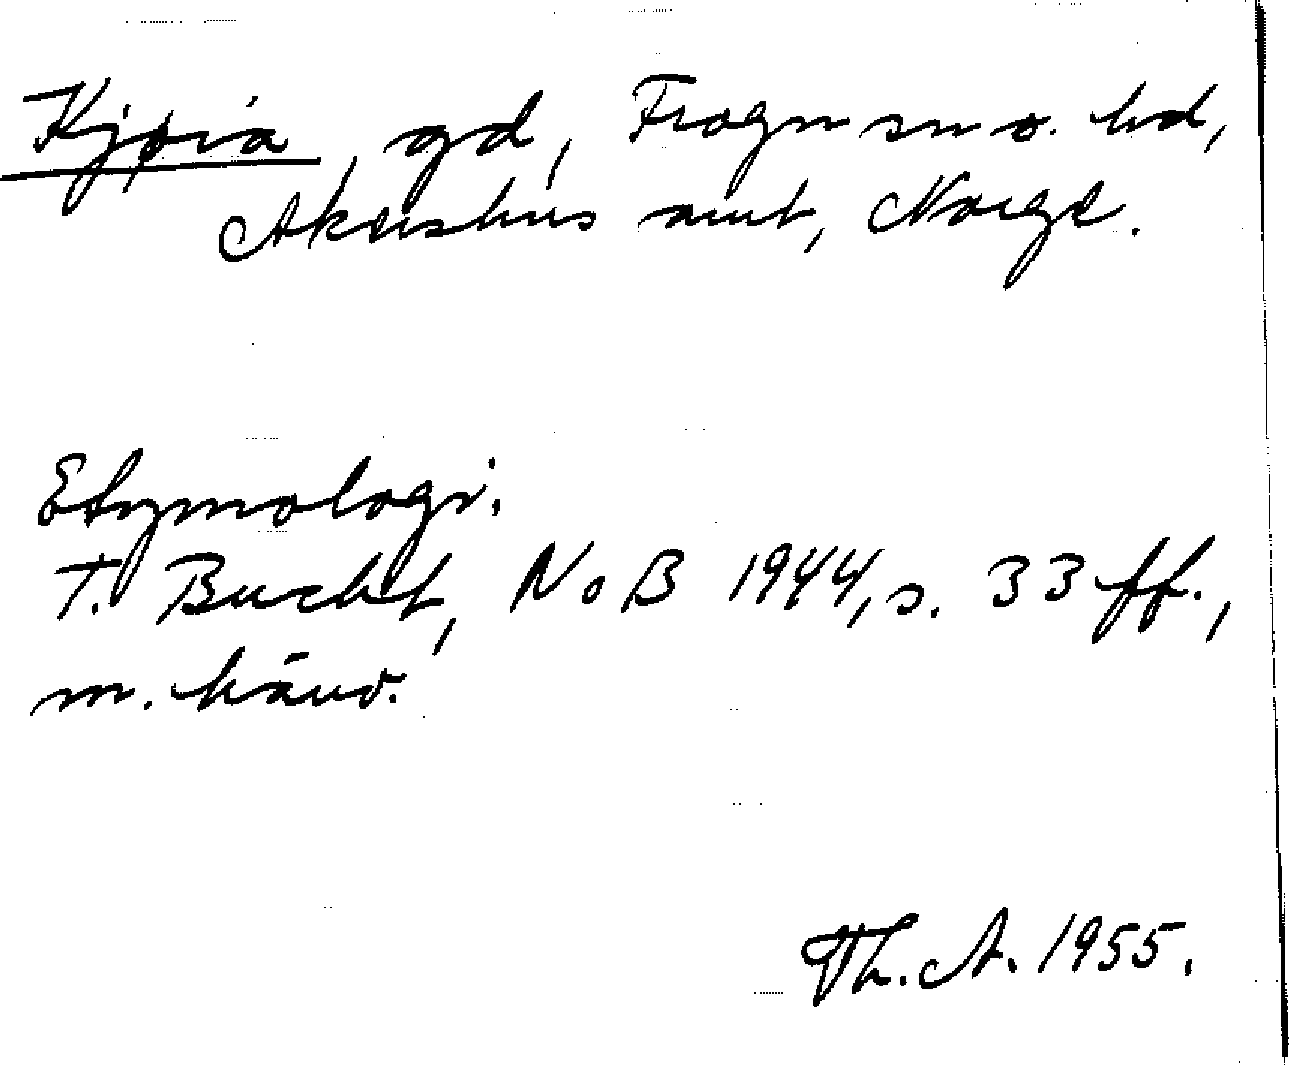 Kjøia, gd, Frogn sn o. hd,
Akershus amt, Norge.
Etymologi.
T. Bucht, NoB 1944, s. 33 ff.,
m. hänv.
Th. A. 1955.